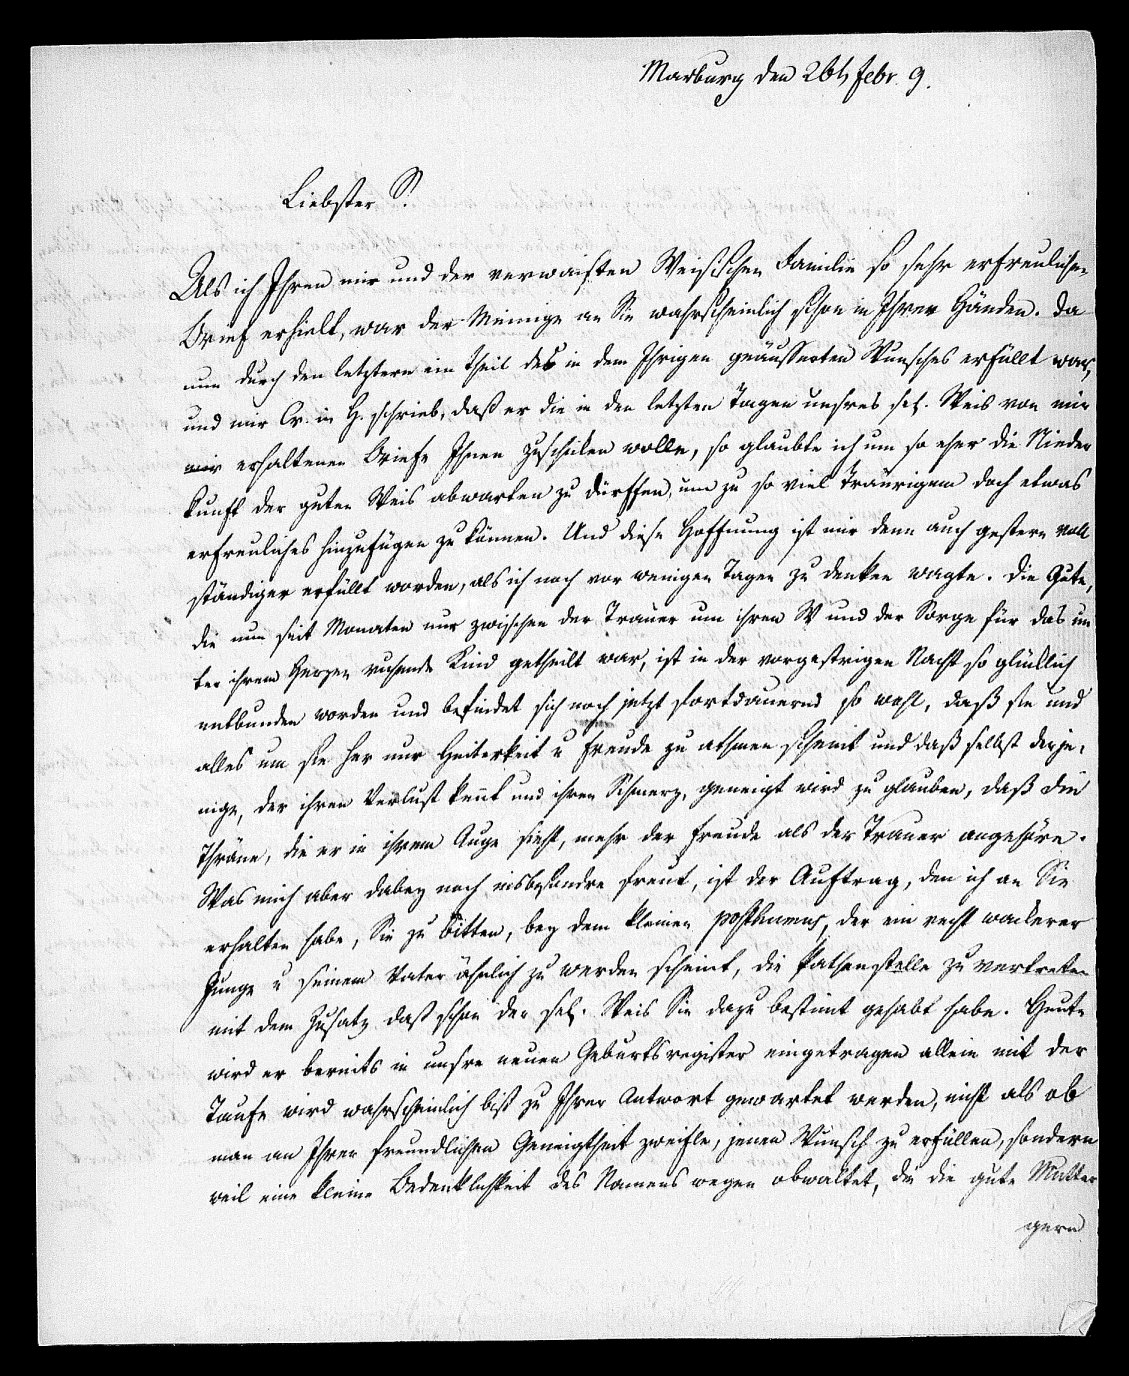 Marburg den 26t Febr. 9.
Liebster S.
Als ich Ihren mir und der verwaisten Weisischen Familie so sehr erfreulichen
Brief erhielt, war der Meinige an Sie wahrscheinlich schon in Ihren Händen. Da
nun durch den letztern ein Theil des in dem Ihrigen geäusserten Wunsches erfüllt war,
und mir Cr. in H. schrieb, daß er die in den letzten Tagen unsres sel. Weis von mir
mir erhaltenen Briefe Ihnen zuschicken wolle, so glaubte ich um so eher die Nieder
kunft der guten Weis abwarten zu dürffen, um zu so viel Traurigem doch etwas
erfreuliches hinzufügen zu können. Und diese Hoffnung ist mir denn auch gestern voll
ständiger erfüllt worden, als ich noch vor wenigen Tagen zu denken wagte. Die Gute,
die nun seit Monaten nur zwischen der Trauer um ihren W und der Sorge für das un
ter ihrem Herzen ruhende Kind getheilt war, ist in der vorgestrigen Nacht so glücklich
entbunden worden und befindet sich noch jetzt fortdauernd so wohl, daß sie und
alles um sie her nur Heiterkeit u Freude zu athmen scheint und daß selbst derje,
nige, der ihren Verlust kennt und ihren Schmerz, geneigt wird zu glauben, daß die
Thräne, die er in ihrem Auge sieht, mehr der Freude als der Trauer angehöre.
Was mich aber dabey noch insbesondre freut, ist der Auftrag, den ich an Sie
erhalten habe, Sie zu bitten, bey dem kleinen posthumus, der ein recht wackerer
Junge u seinem Vater ähnlich zu werden scheint, die Pathenstelle zu vertreten
mit dem Zusatz daß schon der sel. Weis Sie dazu bestimt gehabt habe. Heute
wird er bereits in unsre neuen Geburtsregister eingetragen allein mit der
Taufe wird wahrscheinlich biß zu Ihrer Antwort gewartet werden, nicht als ob
man an Ihrer freundlichen Geneigtheit zweifle, jenen Wunsch zu erfüllen, sondern
weil eine kleine Bedenklichkeit des Namens wegen obwaltet, da die gute Mutter
gern